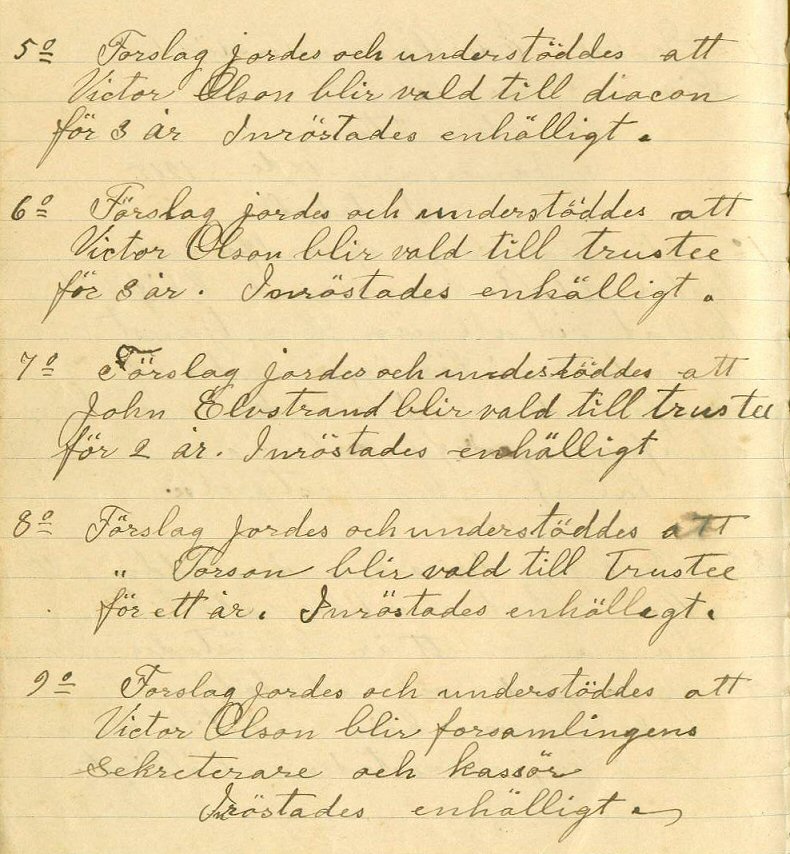 5º Forslag jordes och understöddes att
Victor Olson blir vald till diacon
för 3 år Inröstades enhälligt.
6º Förslag jordes och understöddes att
Victor Olson blir vald till trustee
för 3 år. Inröstades enhälligt.
7º Förslag jordes och understöddes att
John Elvstrand blir vald till trustee
för 2 år. Inröstades enhälligt
8º Förslag jordes och understöddes att
" Torson blir vald till Trustee
för ett år. Inröstades enhälligt.
9º Forslag jordes och understöddes att
Victor Olson blir forsamlingens
Sekreterare och kassör
Inröstades enhälligt.